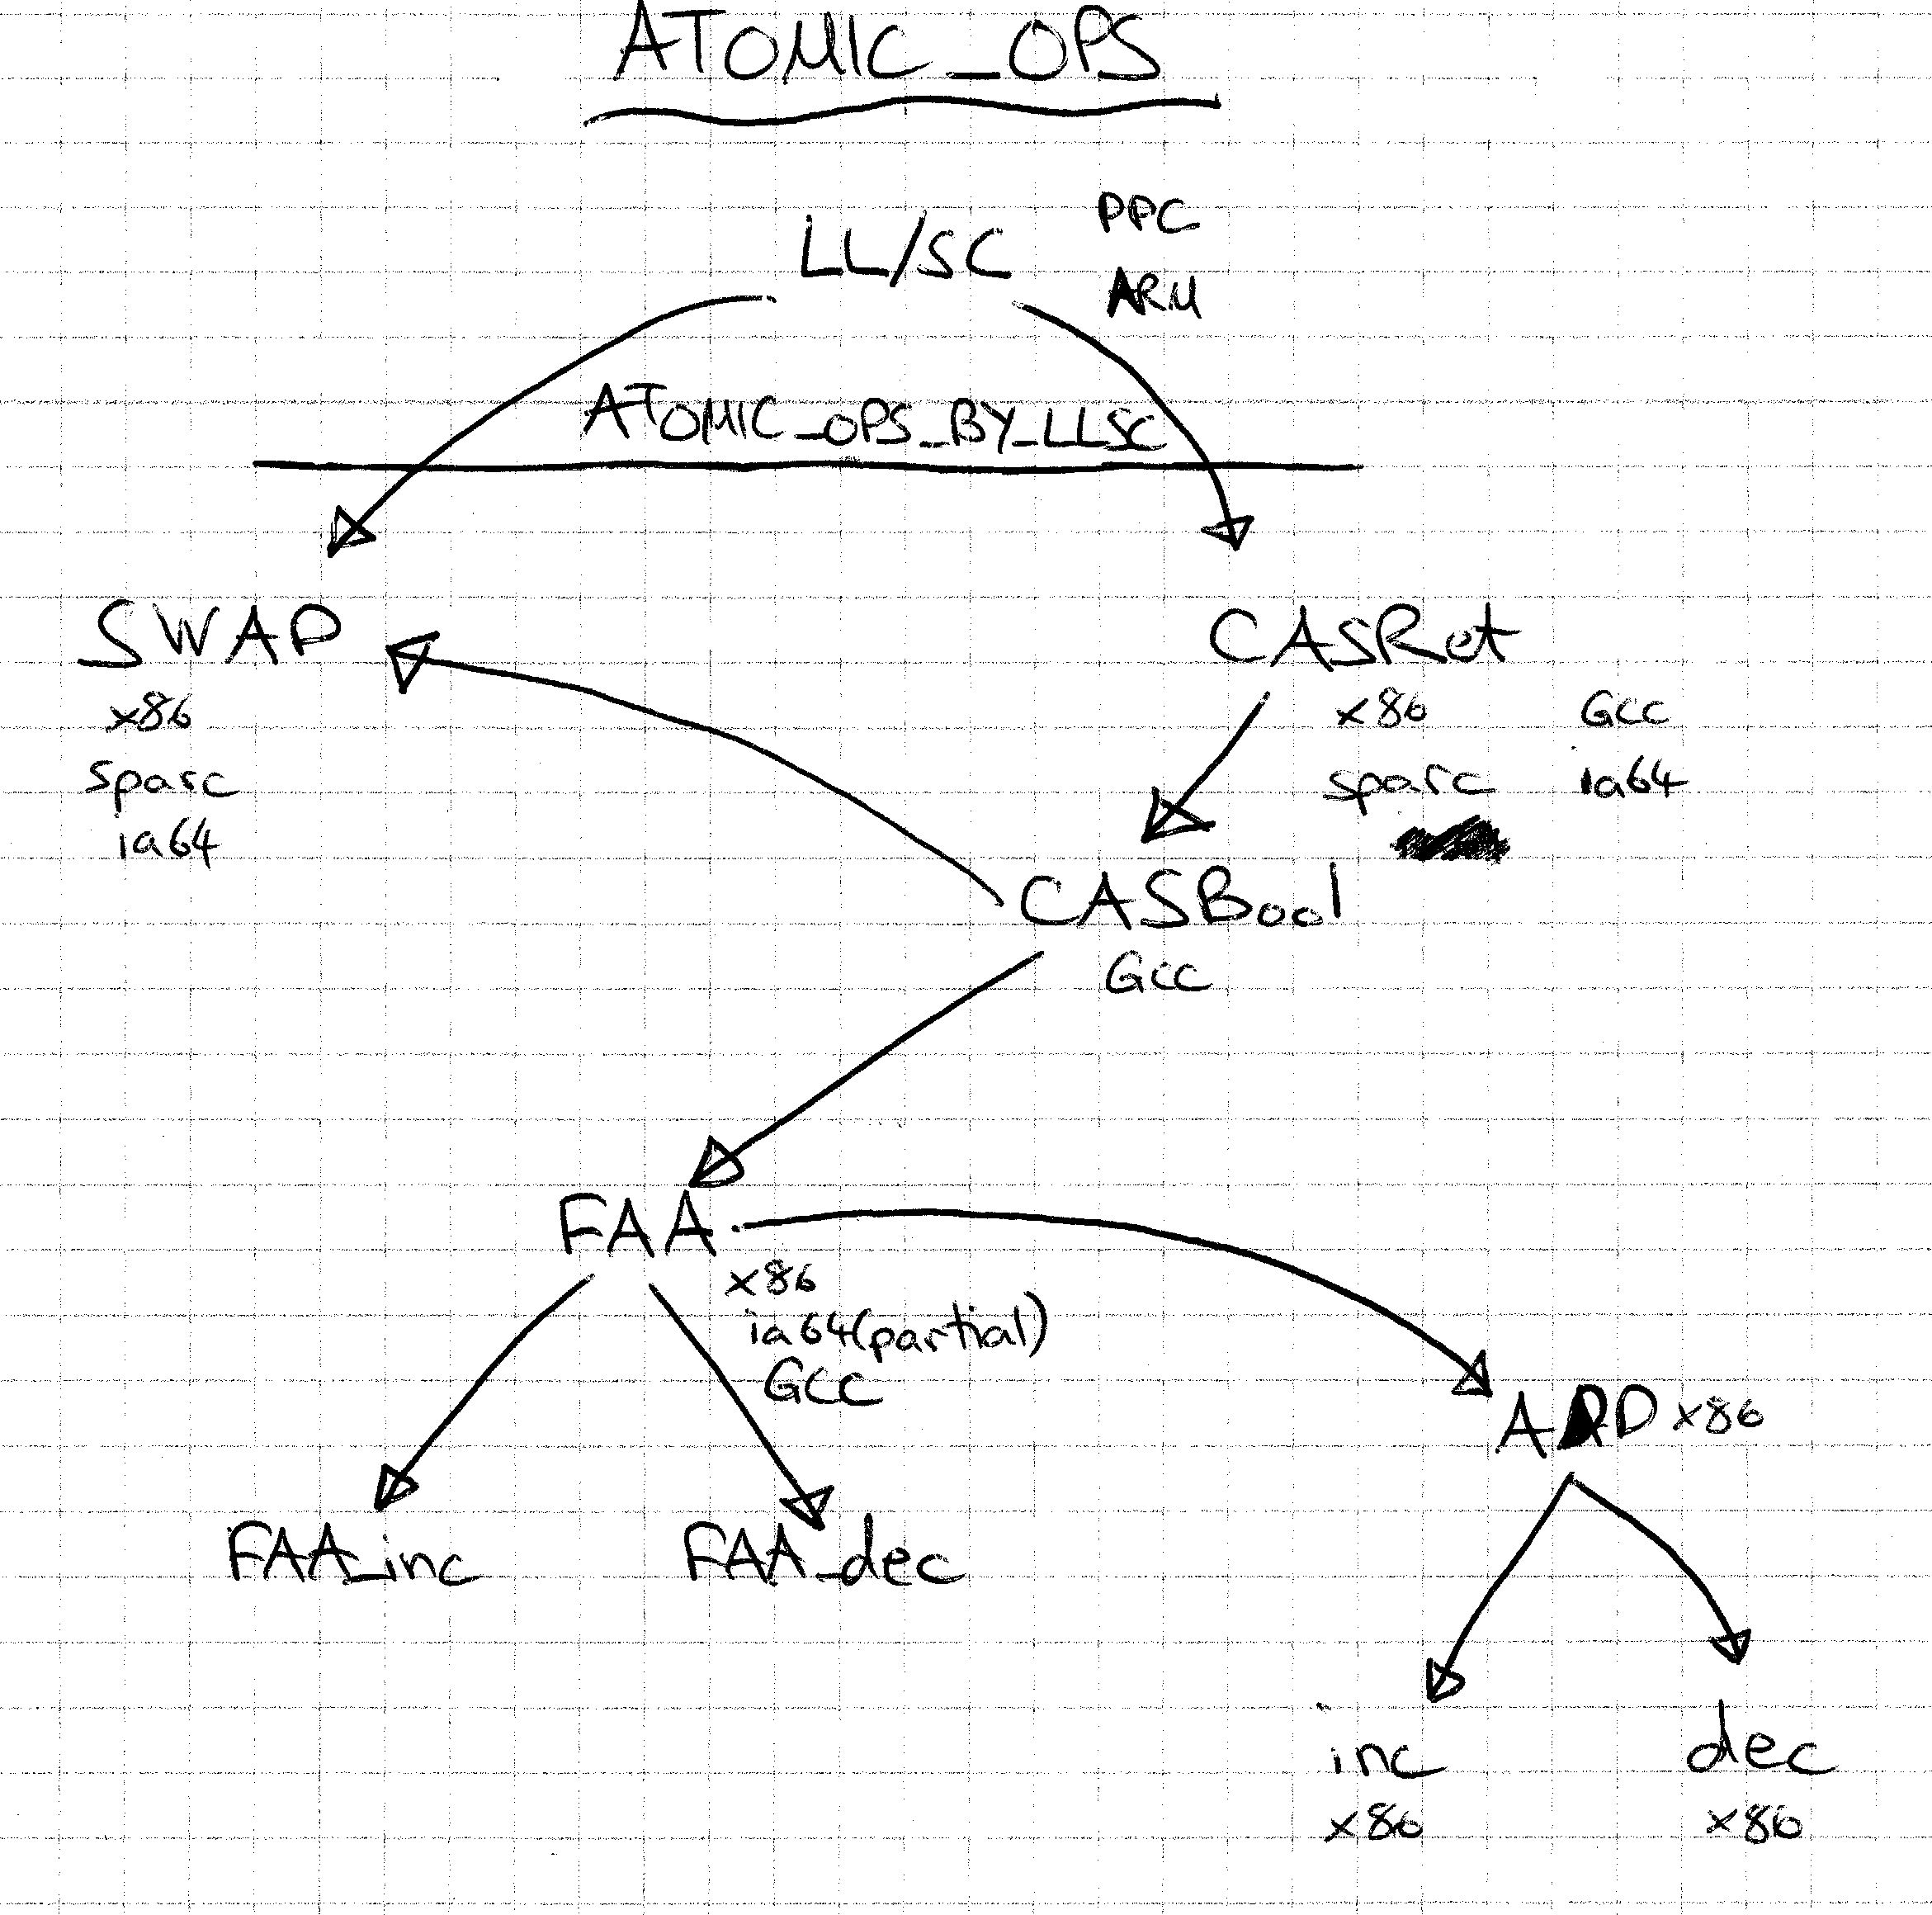 ATOMIC_OPS
LL/SC
PPC
ARM
ATOMIC_OPS_BY_LLSC
SWAP
x86
sparc
ia64
CASRet
x86
Gcc
sparc
ia64
CASBool
Gcc
FAA
x86
ia64(partial)
GCC
ADD x86
FAA_inc
FAA_dec
inc
x86
dec
x86